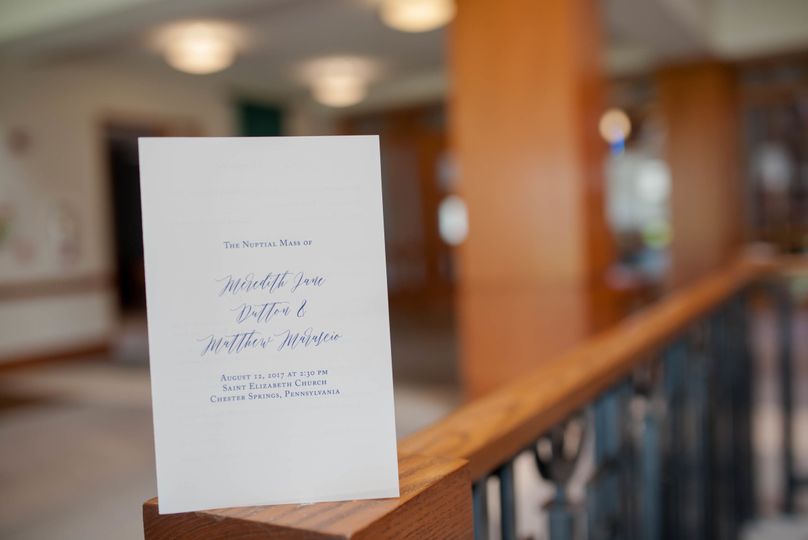 The Nuptial Mass of
Meredith Jane
Dutton &
Matthew Maruscio
August 12, 2017 at 2:30 pm
Saint Elizabeth Church
Chester Springs, Pennsylvania